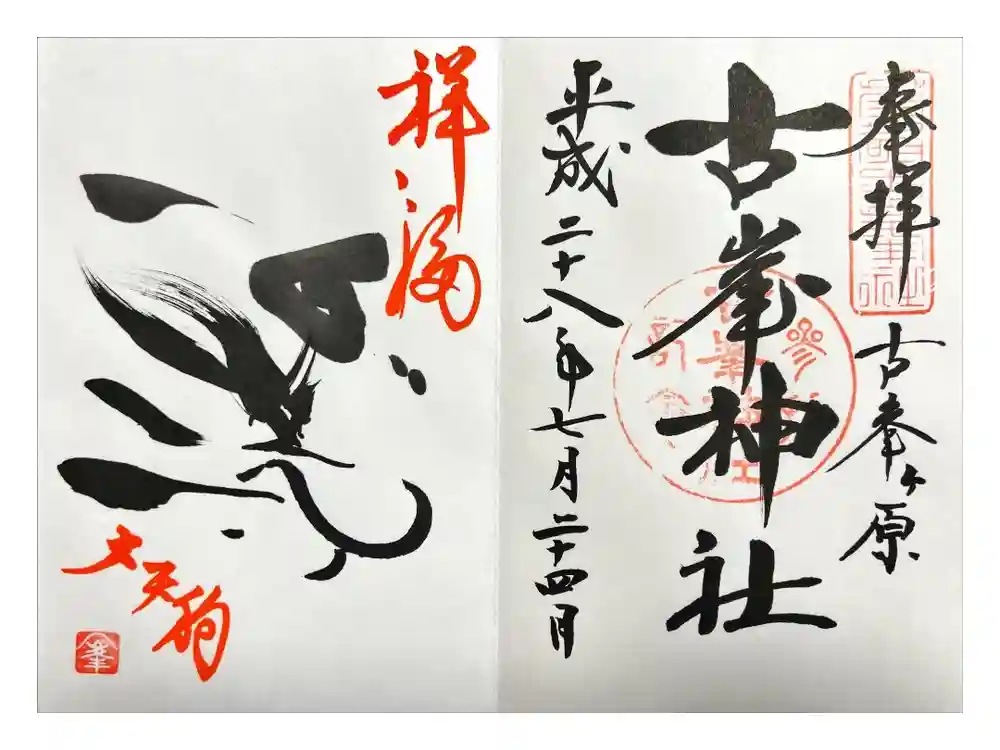 奉拝
古峯ヶ原
古峯神社
平成二十八年七月二十四日
祥福
大天狗
峯